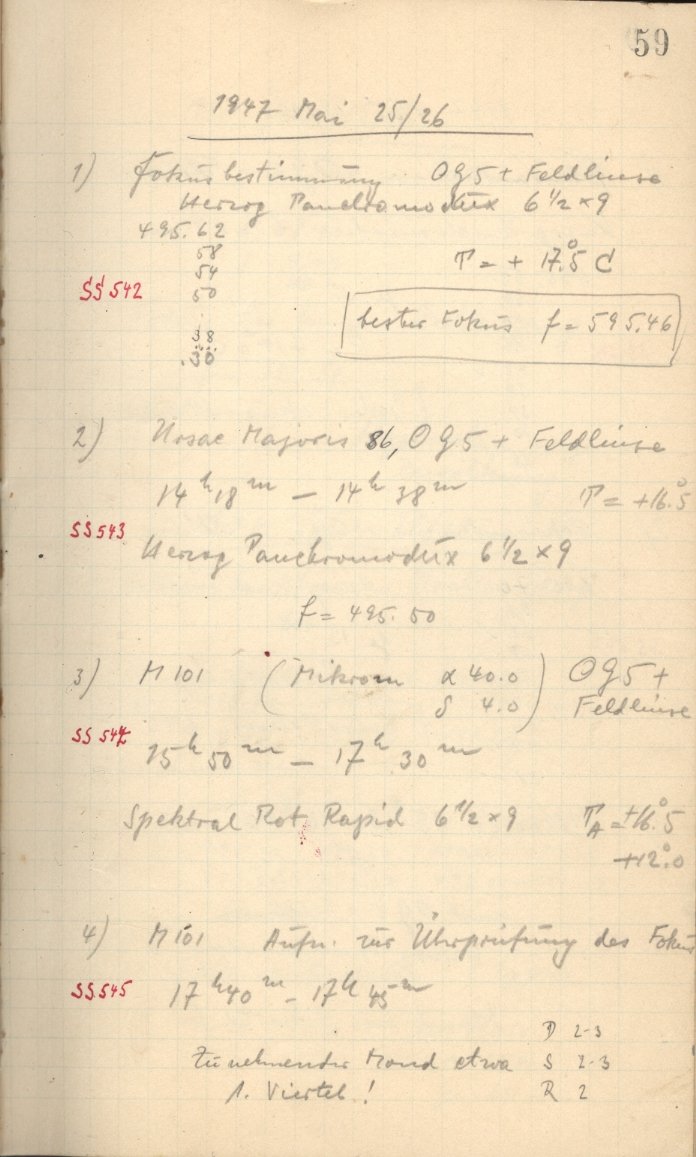 59
1947 Mai 25/26
1) Fokusbestimmung OG5 + Feldlinse
Herzog Panchromodux 6 1/2 × 9
495.62
58
54
50
38
.30
T = + 17°.5 C
SS 542
bester Fokus f = 595.46
2) Ursae Majoris 86, OG5 + Feldlinse
14h 18m – 14h 38m T = +16°.5
SS 543
Herzog Panchromodux 6 1/2 × 9
f = 495.50
3) M 101 (Mikrom α 40.0 OG5 +
δ 4.0) Feldlinse
SS 544
15h 50m – 17h 30m
Spektral Rot Rapid 6 1/2 × 9 TA = +16°.5
+12°.0
4) M 101 Aufn. zur Überprüfung des Fokus
SS.545 17h 40m – 17h 45m
D 2-3
Zunehmender Mond etwa S 2-3
1. Viertel! R 2